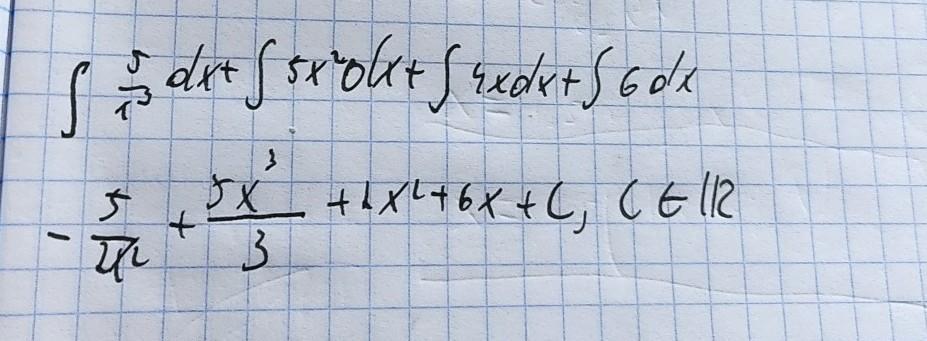 ∫ 5/x³ dx + ∫ 5x² dx + ∫ 4x dx + ∫ 6 dx
- 5/2x² + 5x³/3 + 2x² + 6x + C, C ∈ ℝ